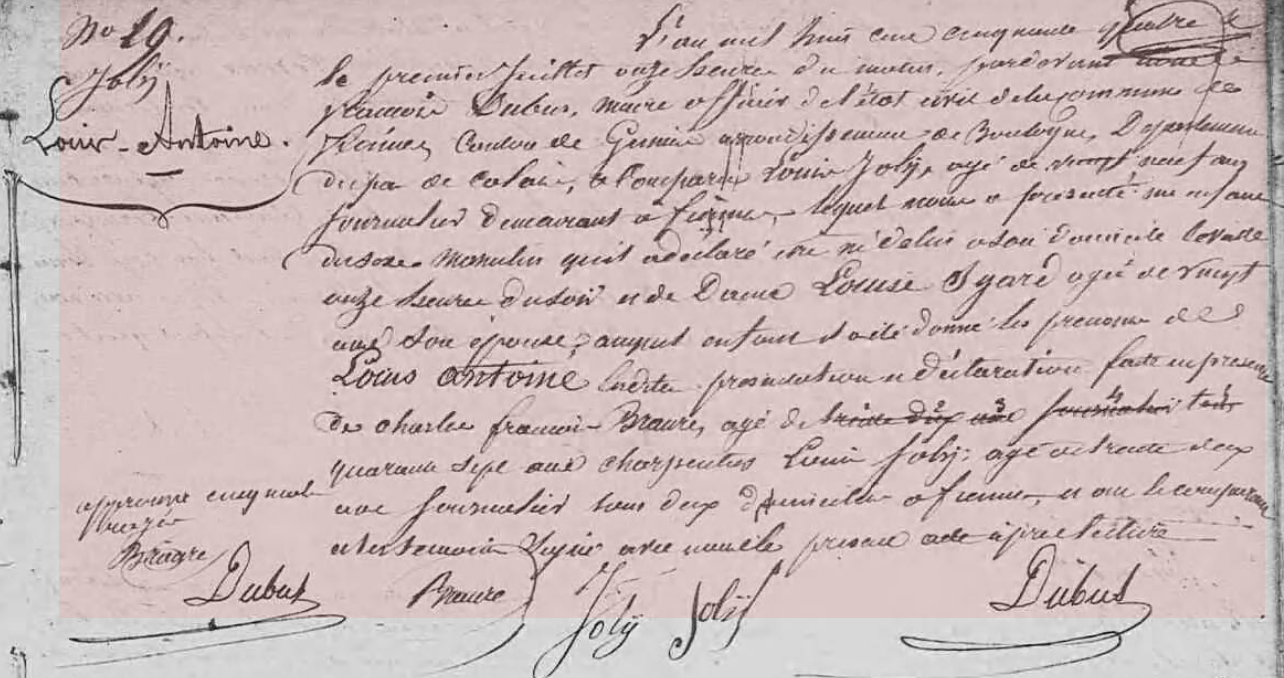 No 19.
Jolÿ
Louis-Antoine.
L'an mil huit cent cinquante quatre le
le premier Juillet onze heures du matin, pardevant nous
françois Dubus, maire officier de l'état civil de la commune de
fiennes Canton de Guines arrondissement de Boulogne, Departement
du pas de Calais, a Comparu Louis Jolÿ, agé de vingt neuf ans
Journalier demeurant a fiennes, lequel nous a presenté un enfant
du sexe masculin qu'il a déclaré être né de lui a son domicile
onze heures du soir et de Dame Louise agée de vingt
ans son épouse, auquel enfant il a été donné les prenoms de
Louis antoine, Ladite presentation et déclaration faite en presence
de charles francois Braure, agé de trente dix
quarante sept ans charpentier Louis Jolÿ agé de trente deux
ans Journalier tous deux domiciliés a fiennes, et ont le comparant
et les temoins signé avec nous le present acte après lecture
approuvé cinq mots
rayés
Braure
Dubus
Braure
Jolÿ
Jolÿ
Dubus